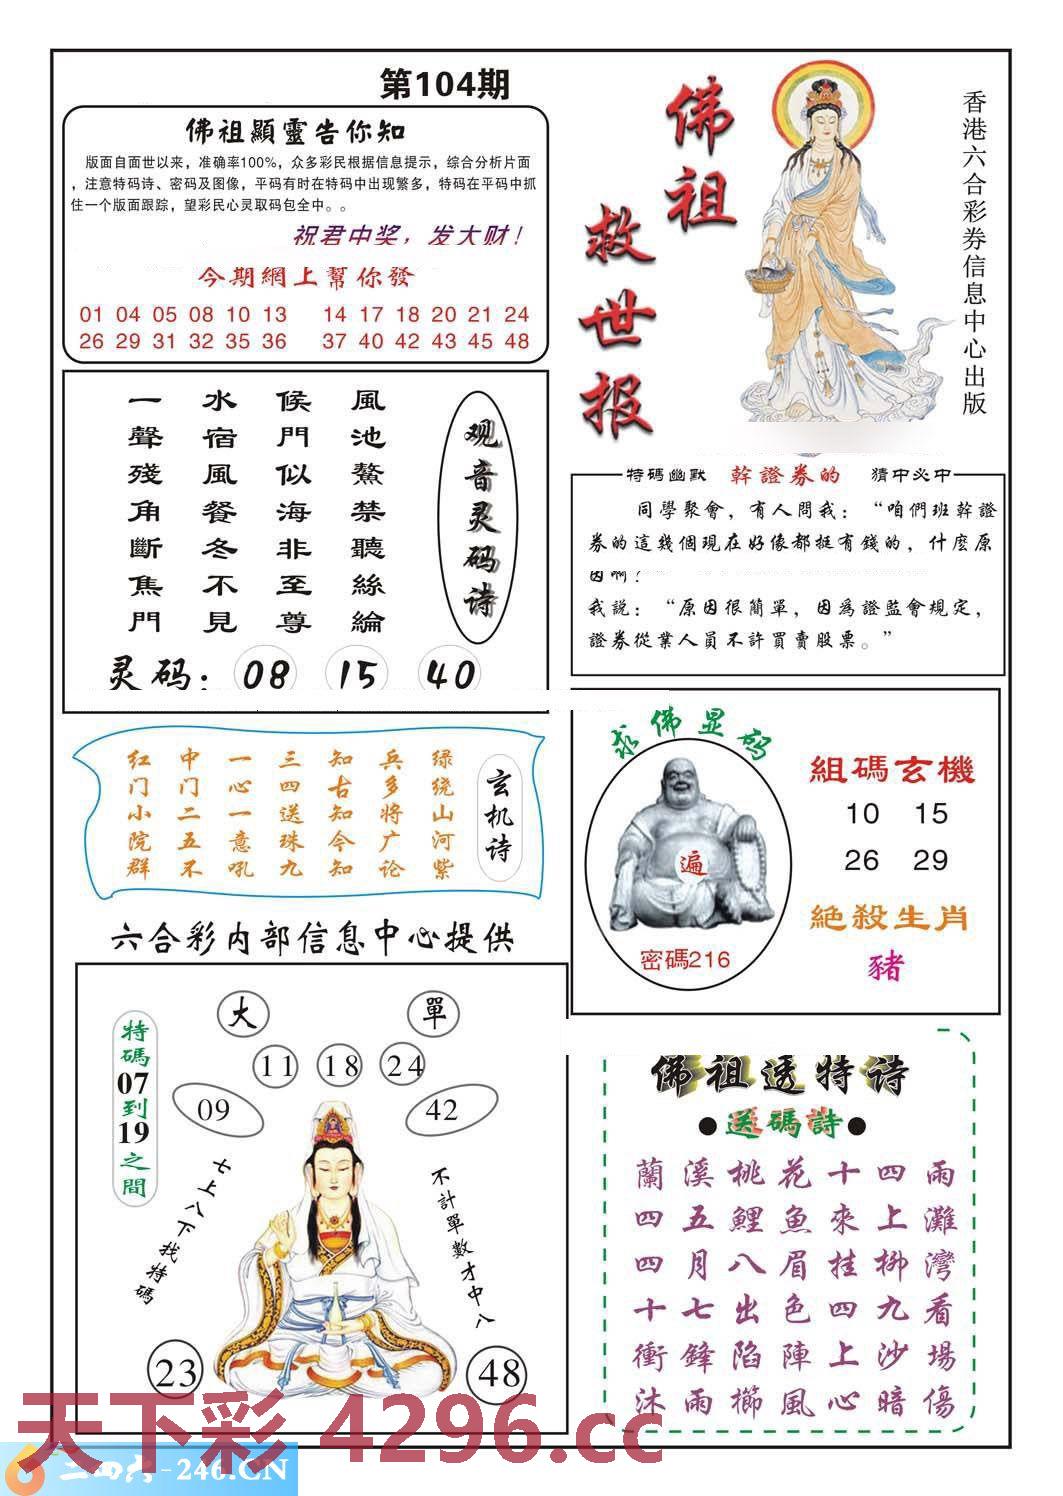 第104期
佛祖顯靈告你知
版面自面世以来，准确率100%，众多彩民根据信息提示，综合分析片面
，注意特码诗、密码及图像，平码有时在特码中出现繁多，特码在平码中抓
住一个版面跟踪，望彩民心灵取码包全中。。
祝君中奖，发大财！
今期網上幫你發
01 04 05 08 10 13 14 17 18 20 21 24
26 29 31 32 35 36 37 40 42 43 45 48
佛祖
救世报
香港六合彩券信息中心出版
观音灵码诗
風池鰲禁聽絲綸
候門似海非至尊
水宿風餐冬不見
一聲殘角斷焦門
灵码：08 15 40
特碼幽默 幹證券的 猜中必中
同學聚會，有人問我：“咱們班幹證
券的這幾個現在好像都挺有錢的，什麽原
因啊？
我説：“原因很簡單，因爲證監會規定，
證券從業人員不許買賣股票。”
玄机诗
绿绕山河紫
兵多将广论
知古知今知
三四送珠九
一心一意吼
中门二五不
红门小院群
求佛显码
遍
密碼216
組碼玄機
10 15
26 29
絶殺生肖
豬
六合彩内部信息中心提供
大
單
11 18 24
09
42
特碼07到19之間
七上八下找特碼
不計單數才中八
23
48
佛祖透特诗
●送碼詩●
蘭溪桃花十四雨
四五鯉魚來上灘
四月八眉挂柳灣
十七出色四九看
衝鋒陷陣上沙場
沐雨櫛風心暗傷
天下彩 4296.cc
二四六-246.CN